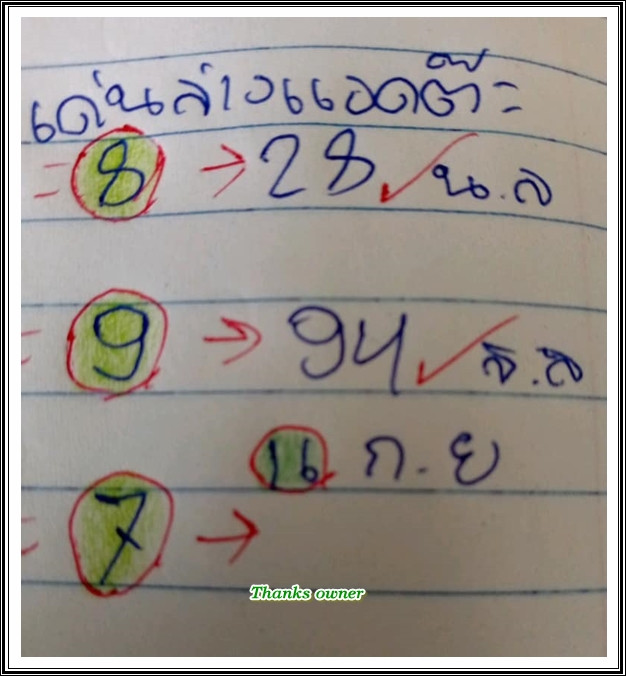 เด่นล่างแอดต๊ะ
= 8 → 28 ✓ น.ล
= 9 → 94 ✓
16 ก.ย
= 7 →
Thanks owner